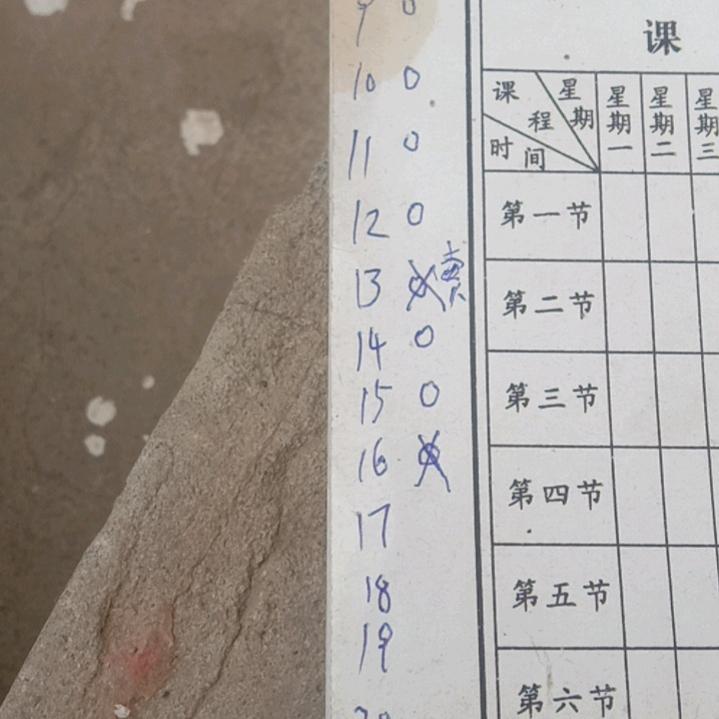 9 0
10 0
11 0
12 0
13
14 0
15 0
16
17
18
19
课
课程 星期 时间 星期一 星期二 星期三
第一节
第二节
第三节
第四节
第五节
第六节